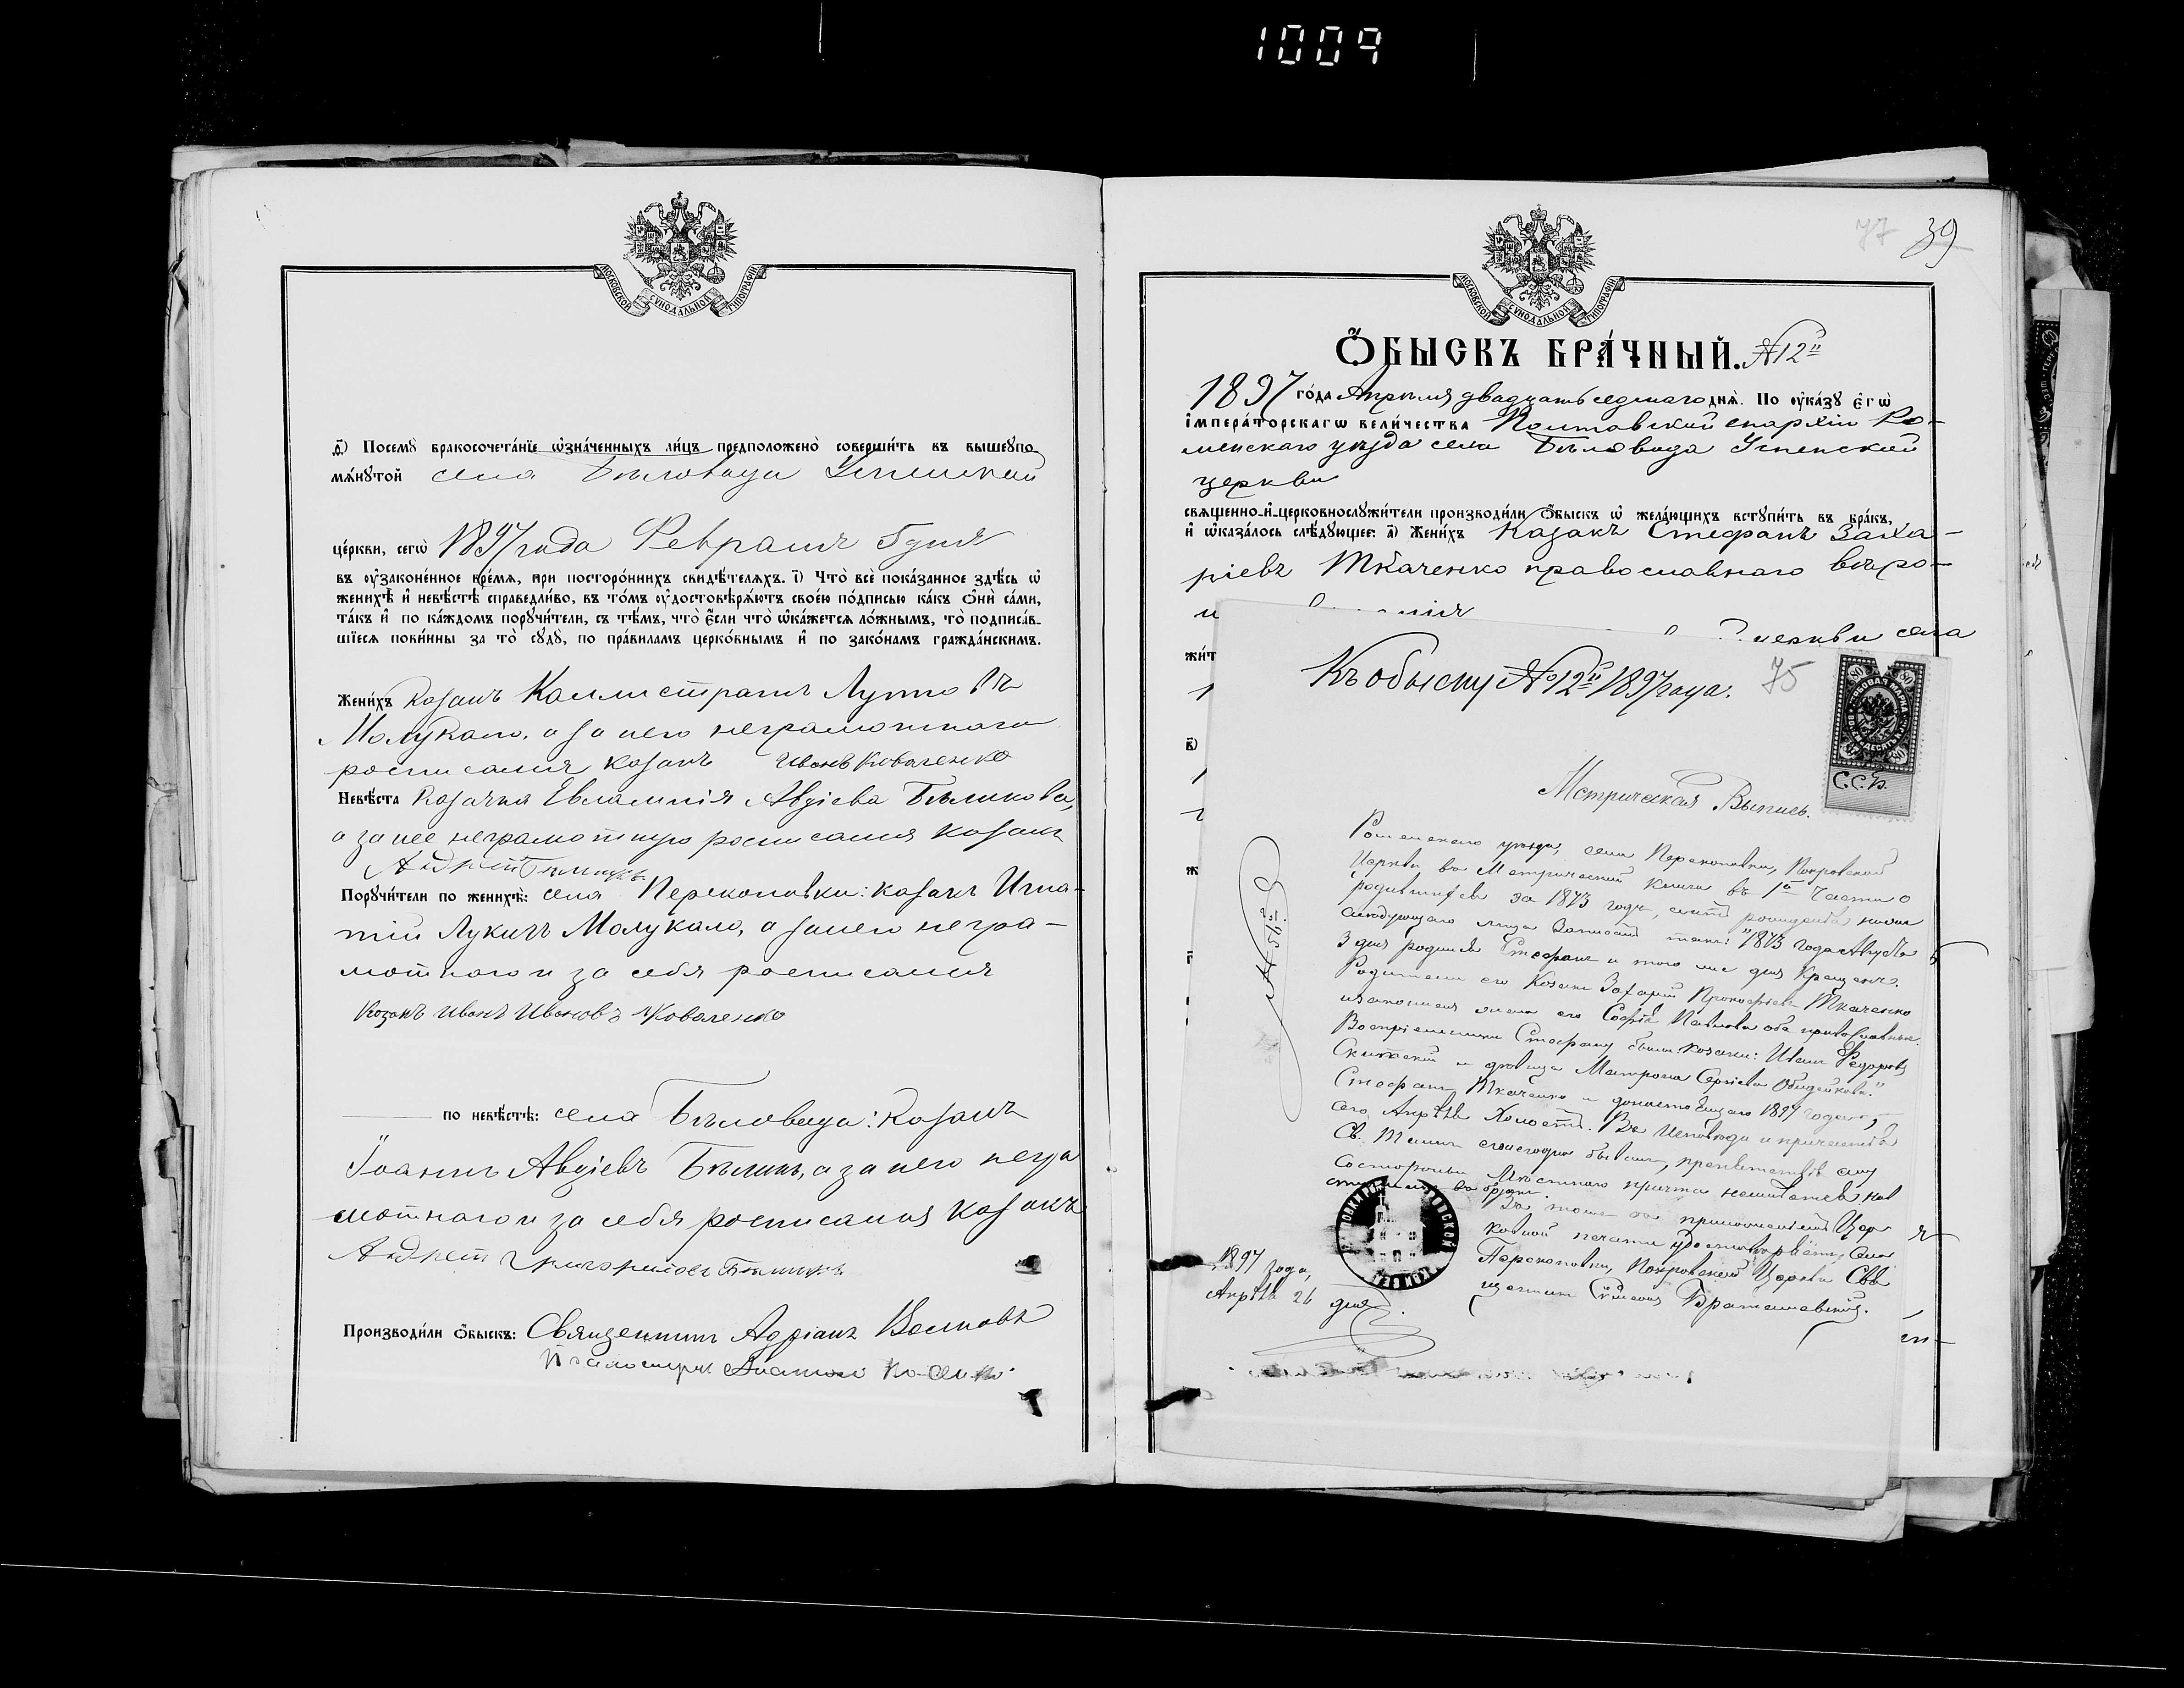 1009
МОСКОВСКОЙ СѴНОДАЛЬНОЙ ТИПОГРАФІИ
д҃) Посемꙋ̀ бракосочета́нїе ѡ҆зна́ченныхъ ли́цъ предположено̀ соверши́ть въ вышеꙋпо-
мѧ́нꙋтой села Бѣловода Успенской
це́ркви, сегѡ̀ 1897 года Февраля 5 дня
въ ᲂу҆законе́нное вре́мѧ, при посторо́ннихъ свидѣ́телѧхъ. і҃) Что̀ всѐ пока́занное здѣ́сь ѡ҆
женихѣ̀ и҆ невѣ́стѣ справедли́во, въ то́мъ ᲂу҆достовѣрѧ́ютъ свое́ю по́дписью ка́къ ѻ҆нѝ са́ми,
та́къ и҆ по ка́ждомъ порꙋчи́тели, съ тѣ́мъ, что̀ е҆́сли что̀ ѡ҆ка́жетсѧ ло́жнымъ, то̀ подписа́в-
шїесѧ пови́нны за то̀ сꙋдꙋ̀, по пра́виламъ церко́внымъ и҆ по зако́намъ гражда́нскимъ.
Жени́хъ Козакъ Каллистратъ Лукинъ
Молукало, а за него неграмотнаго
росписался козакъ Иванъ Коваленко
Невѣ́ста Козачка Евлампія Авдіева Бѣликова,
а за нее неграмотную росписался козакъ
Андрей Бѣликъ
Порꙋчи́тели по женихѣ̀: села Перекоповки: козакъ Игна-
тій Лукичъ Молукало, а за него негра-
мотнаго и за себя росписался
Козакъ Иванъ Ивановъ Коваленко
по невѣ́стѣ: села Бѣловода: Козакъ
Іоаннъ Авдіевъ Бѣликъ, а за него негра
мотнаго и за себя росписался козакъ
Андрей Григоріевъ Бѣликъ
Производи́ли ѻ҆́быскъ: Священникъ Адріанъ Волковъ
Псаломщикъ
77 39
МОСКОВСКОЙ СѴНОДАЛЬНОЙ ТИПОГРАФІИ
Ѻ҆́БЫСКЪ БРА́ЧНЫЙ. №12й
1897 го́да Апрѣля двадцать седмаго днѧ̀. По ᲂу҆ка́зꙋ є҆гѡ̀
і҆мпера́торскагѡ вели́чества Полтавской епархіи Ро-
менскаго уѣзда села Бѣловода Успенской
церкви
свѧще́нно-и҆-церковнослꙋжи́тели производи́ли ѻ҆́быскъ ѡ҆ жела́ющихъ встꙋпи́ть въ бра́къ,
и҆ ѡ҆каза́лось слѣ́дꙋющее: а҃) Жени́хъ Козакъ Стефанъ Заха-
ріевъ Ткаченко православнаго вѣро-
церкви села
жи́т
Къ обыску №12й 1897 года.
75
80 80
С.С.Б.
Метрическая Выпись.
№ 56й
Роменскаго уѣзда, села Перекоповки, Покровской
Церкви въ Метрической книги въ 1й Части о
родившихся за 1873 годъ, статья рожденія
слѣдующаго лица записано такъ: "1873 года Августа
3 дня родился Стефанъ и того же дня Крещенъ.
Родители его Козакъ Захарій Прокофіевъ Ткаченко
и законная жена его Софія Павлова оба православные.
Воспріемники Стефану были козаки: Иванъ Федоровъ
и дѣвица Матрона Сергіева
Стефанъ Ткаченко и донастоящаго 1897 года
сего Апрѣля Холостъ. Въ Исповѣди и причастія
Св. Таинъ ежегодно бывалъ, препятствій ему
Состороны Мѣстнаго причта неимѣется ко
вступленію въ бракъ.
Въ томъ съ приложеніемъ Цер
ковной печати удостовѣряетъ, села
Перекоповки, Покровской Церкви Свя
щенникъ Братановскій.
1897 года,
Апрѣля 26 дня.